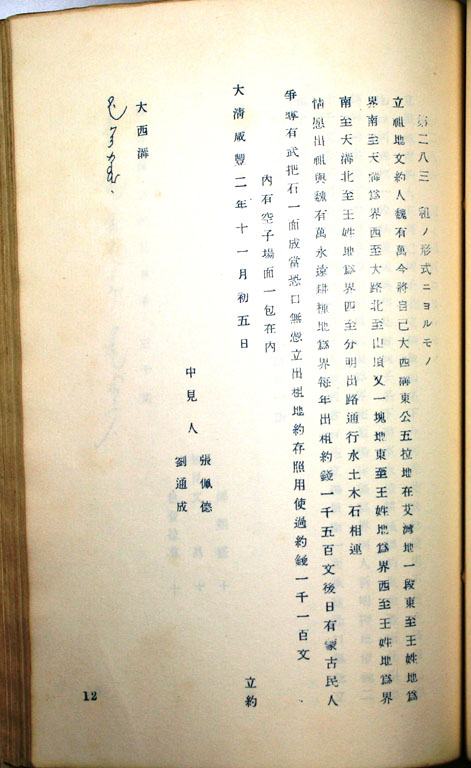 第二八三　租ノ形式ニヨルモノ
立租地文約人魏有萬今將自己大西溝東公五拉地在艾灣地一段東至王姓地爲
界南至天溝爲界西至大路北至山頂又一塊地東至王姓地爲界西至王姓地爲界
南至天溝北至王姓地爲界四至分明出路通行水土木石相連
情愿出租與魏有萬永遠耕種地爲界每年出租約錢一千五百文後日有蒙古民人
爭奪有武把石一面成當恐口無憑立出租地約存照用使過約錢一千一百文
內有空子場面一包在內
大淸咸豐二年十一月初五日　立約
中見人　張佩德
劉通成
大西溝
12